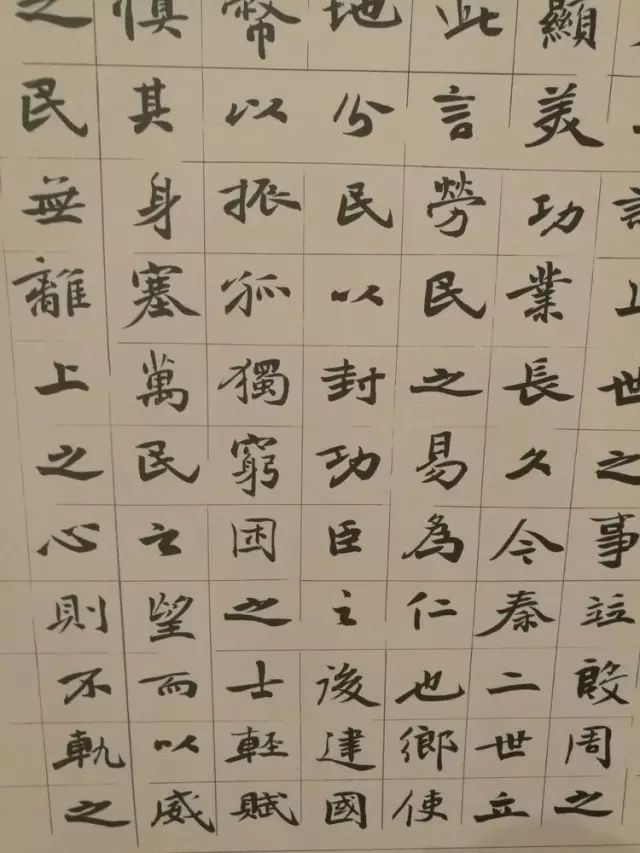 上世之事竝殷周之
顯美功業長久今秦二世立
此言勞民之易為仁也鄉使
地分民以封功臣之後建國
幣以振孤獨窮困之士輕賦
慎其身塞萬民之望而以威
之民無離上之心則不軌之